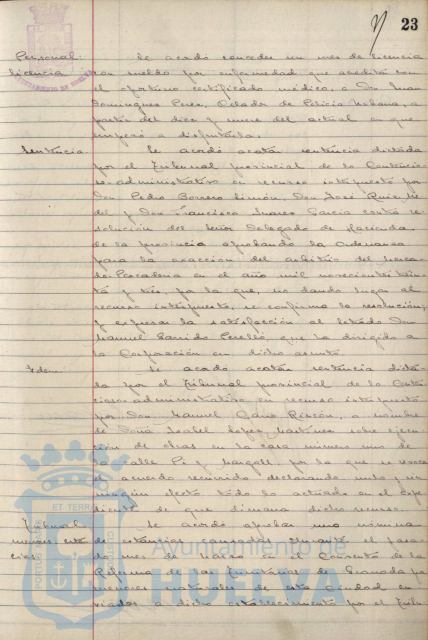 23
Personal: Se acordó conceder un mes de licencia
licencia con sueldo por enfermedad que acredita con
el oportuno certificado médico, a Don Juan
Dominguez Perez, Celador de Policia Urbana, a
partir del diez y nueve del actual en que
empezó a disfrutarla.
Sentencia Se acordó acatar sentencia dictada
por el Tribunal provincial de lo Contencio-
so-administrativo en recurso interpuesto por
Don Pedro Borrero Limón, Don José Ruiz
del y Don Francisco Suarez Garcia contra re-
solución del Señor Delegado de Hacienda
de la provincia aprobando la Ordenanza
para la exacción del arbitrio del Merca-
do-Pescaderia en el año mil novecientos trein-
ta y tres, por la que, no dando lugar al
recurso interpuesto, se confirma la resolución,
y expresar la satisfacción al letrado Don
Manuel Garrido Perelló, que ha dirigido a
la Corporación en dicho asunto.
Idem. Se acordó acatar sentencia dicta-
da por el Tribunal provincial de lo Conten-
cioso-administrativo en recurso interpuesto
por Don Manuel Cano Rincón, a nombre
de Doña Isabel Lopez Martinez sobre ejecu-
ción de obras en la casa número uno de
la calle Pi y Margall, por la que se revoca
el acuerdo recurrido declarando nulo y sin
ningún efecto todo lo actuado en el expe-
diente de que dimana dicho recurso.
Tribunal Se acordó aprobar una nómina
menores: de estancias causadas durante el pasa-
do mes de Enero en el Convento de la
Reforma de las Trinitarias de Granada por
menores naturales de esta Ciudad en-
viados a dicho establecimiento por el Tribu-
Ayuntamiento de
HUELVA